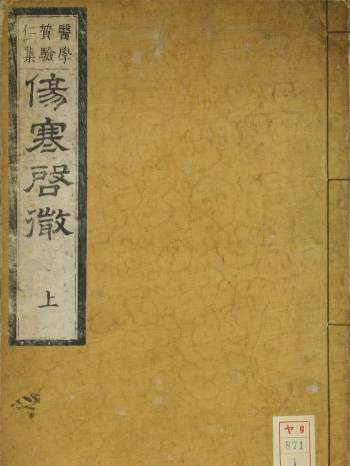 醫學
質驗
仁集
傷寒啓微
上
ヤ 9
871
1